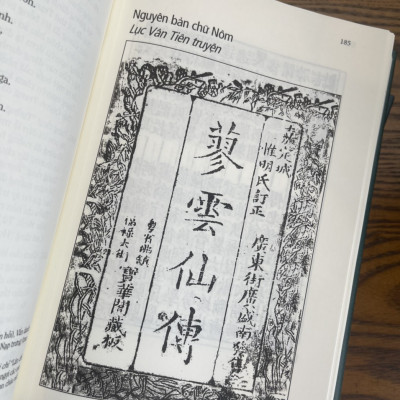 Nguyên bản chữ Nôm
185
Lục Vân Tiên truyện
嘉定城
惟明氏訂正
廣東街廣盛南發售
蓼雲仙傳
福祿大街
寶華閣藏板
ga.